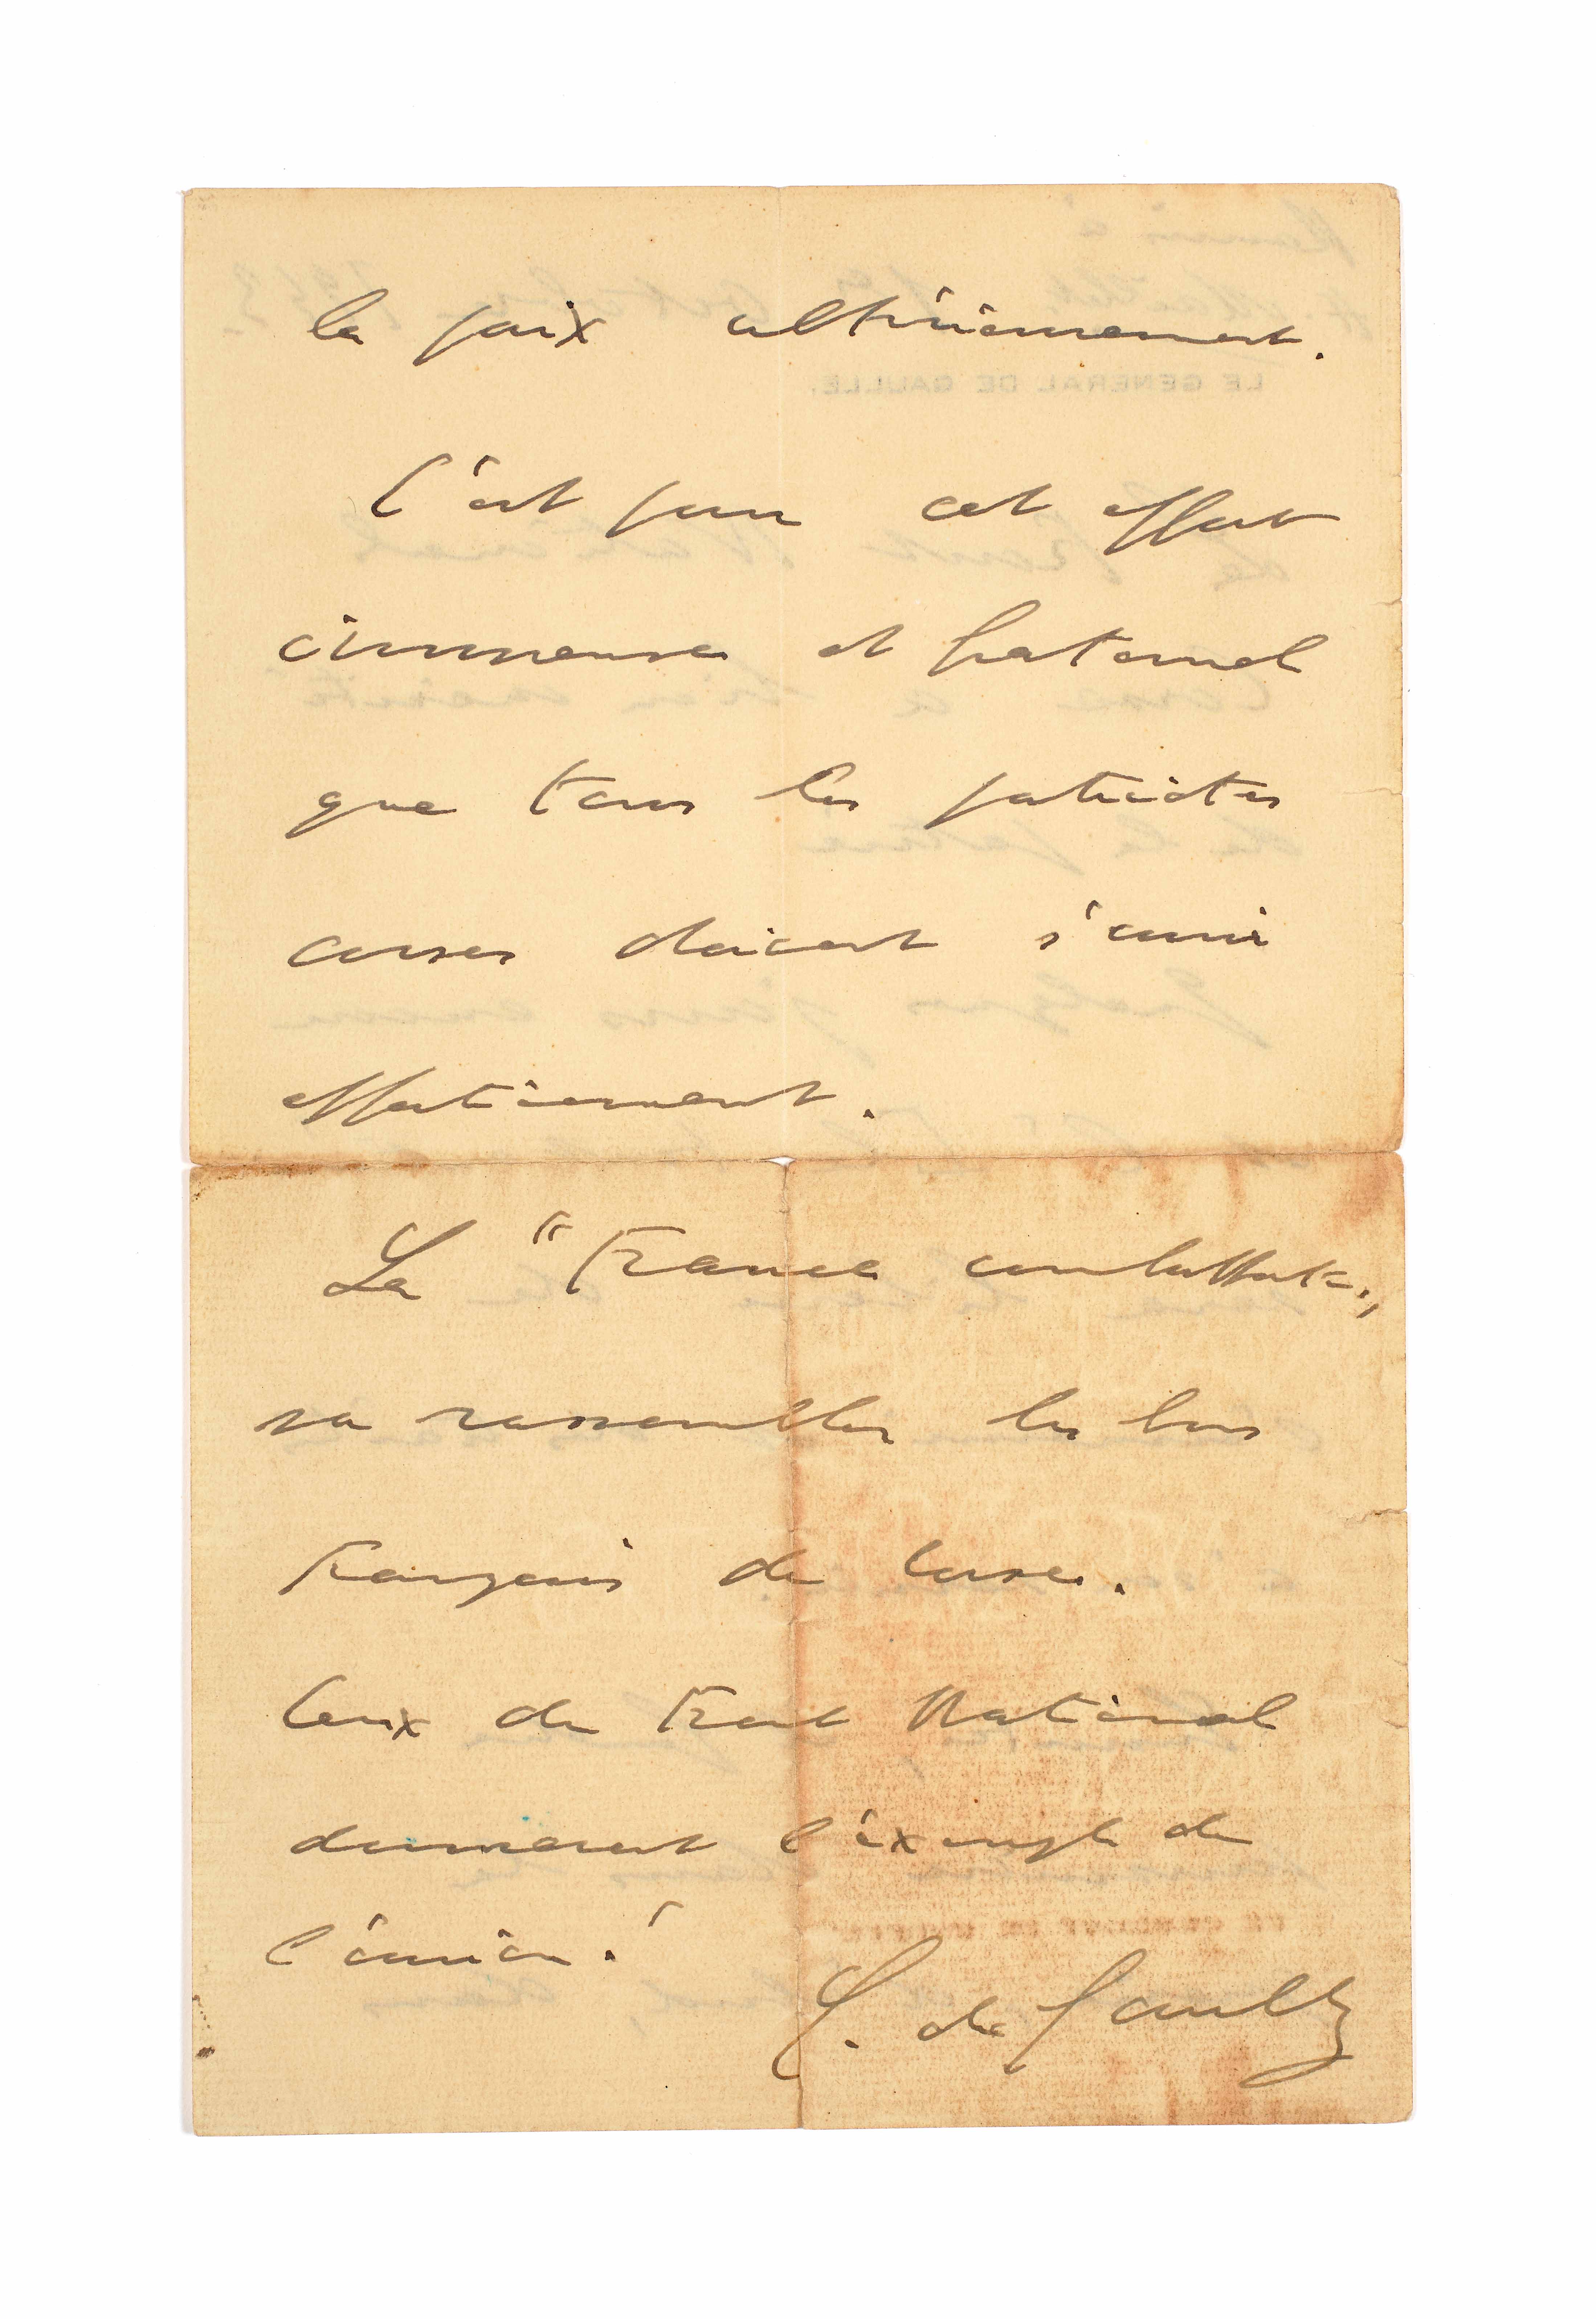 la paix ultérieurement.
C'est pour cet effort
immense et fraternel
que tous les patriotes
corses doivent s'unir
effectivement.
La "France combattante"
va rassembler les bons
français de Corse.
Ceux du Front National
donneront l'exemple de
l'union !
C. de Gaulle
LE GENERAL DE GAULLE.